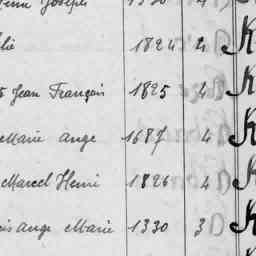 Joseph 1330 4
1824 4 K
Jean François 1825 4 K
Marie Ange 1687 4 K
Marcel Henri 1826 4 K
Ange Marie 1330 3 K